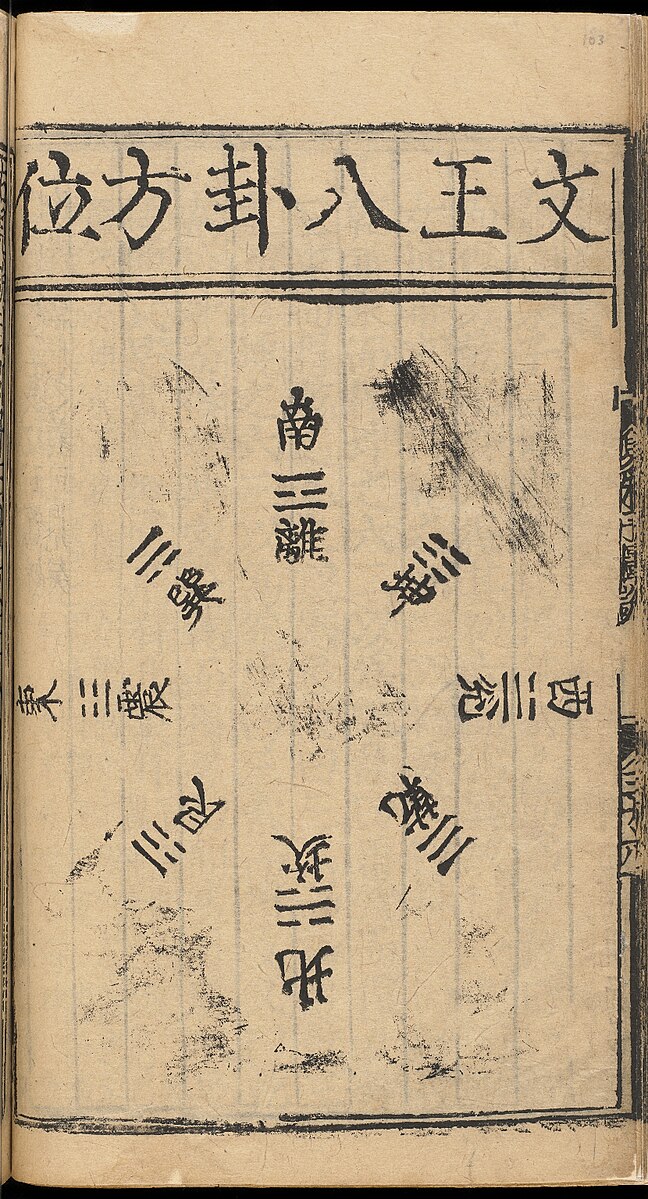 文王八卦方位
南
☲
離
☷
坤
西
☱
兌
☰
乾
北
☵
坎
☶
艮
東
☳
震
☴
巽
103